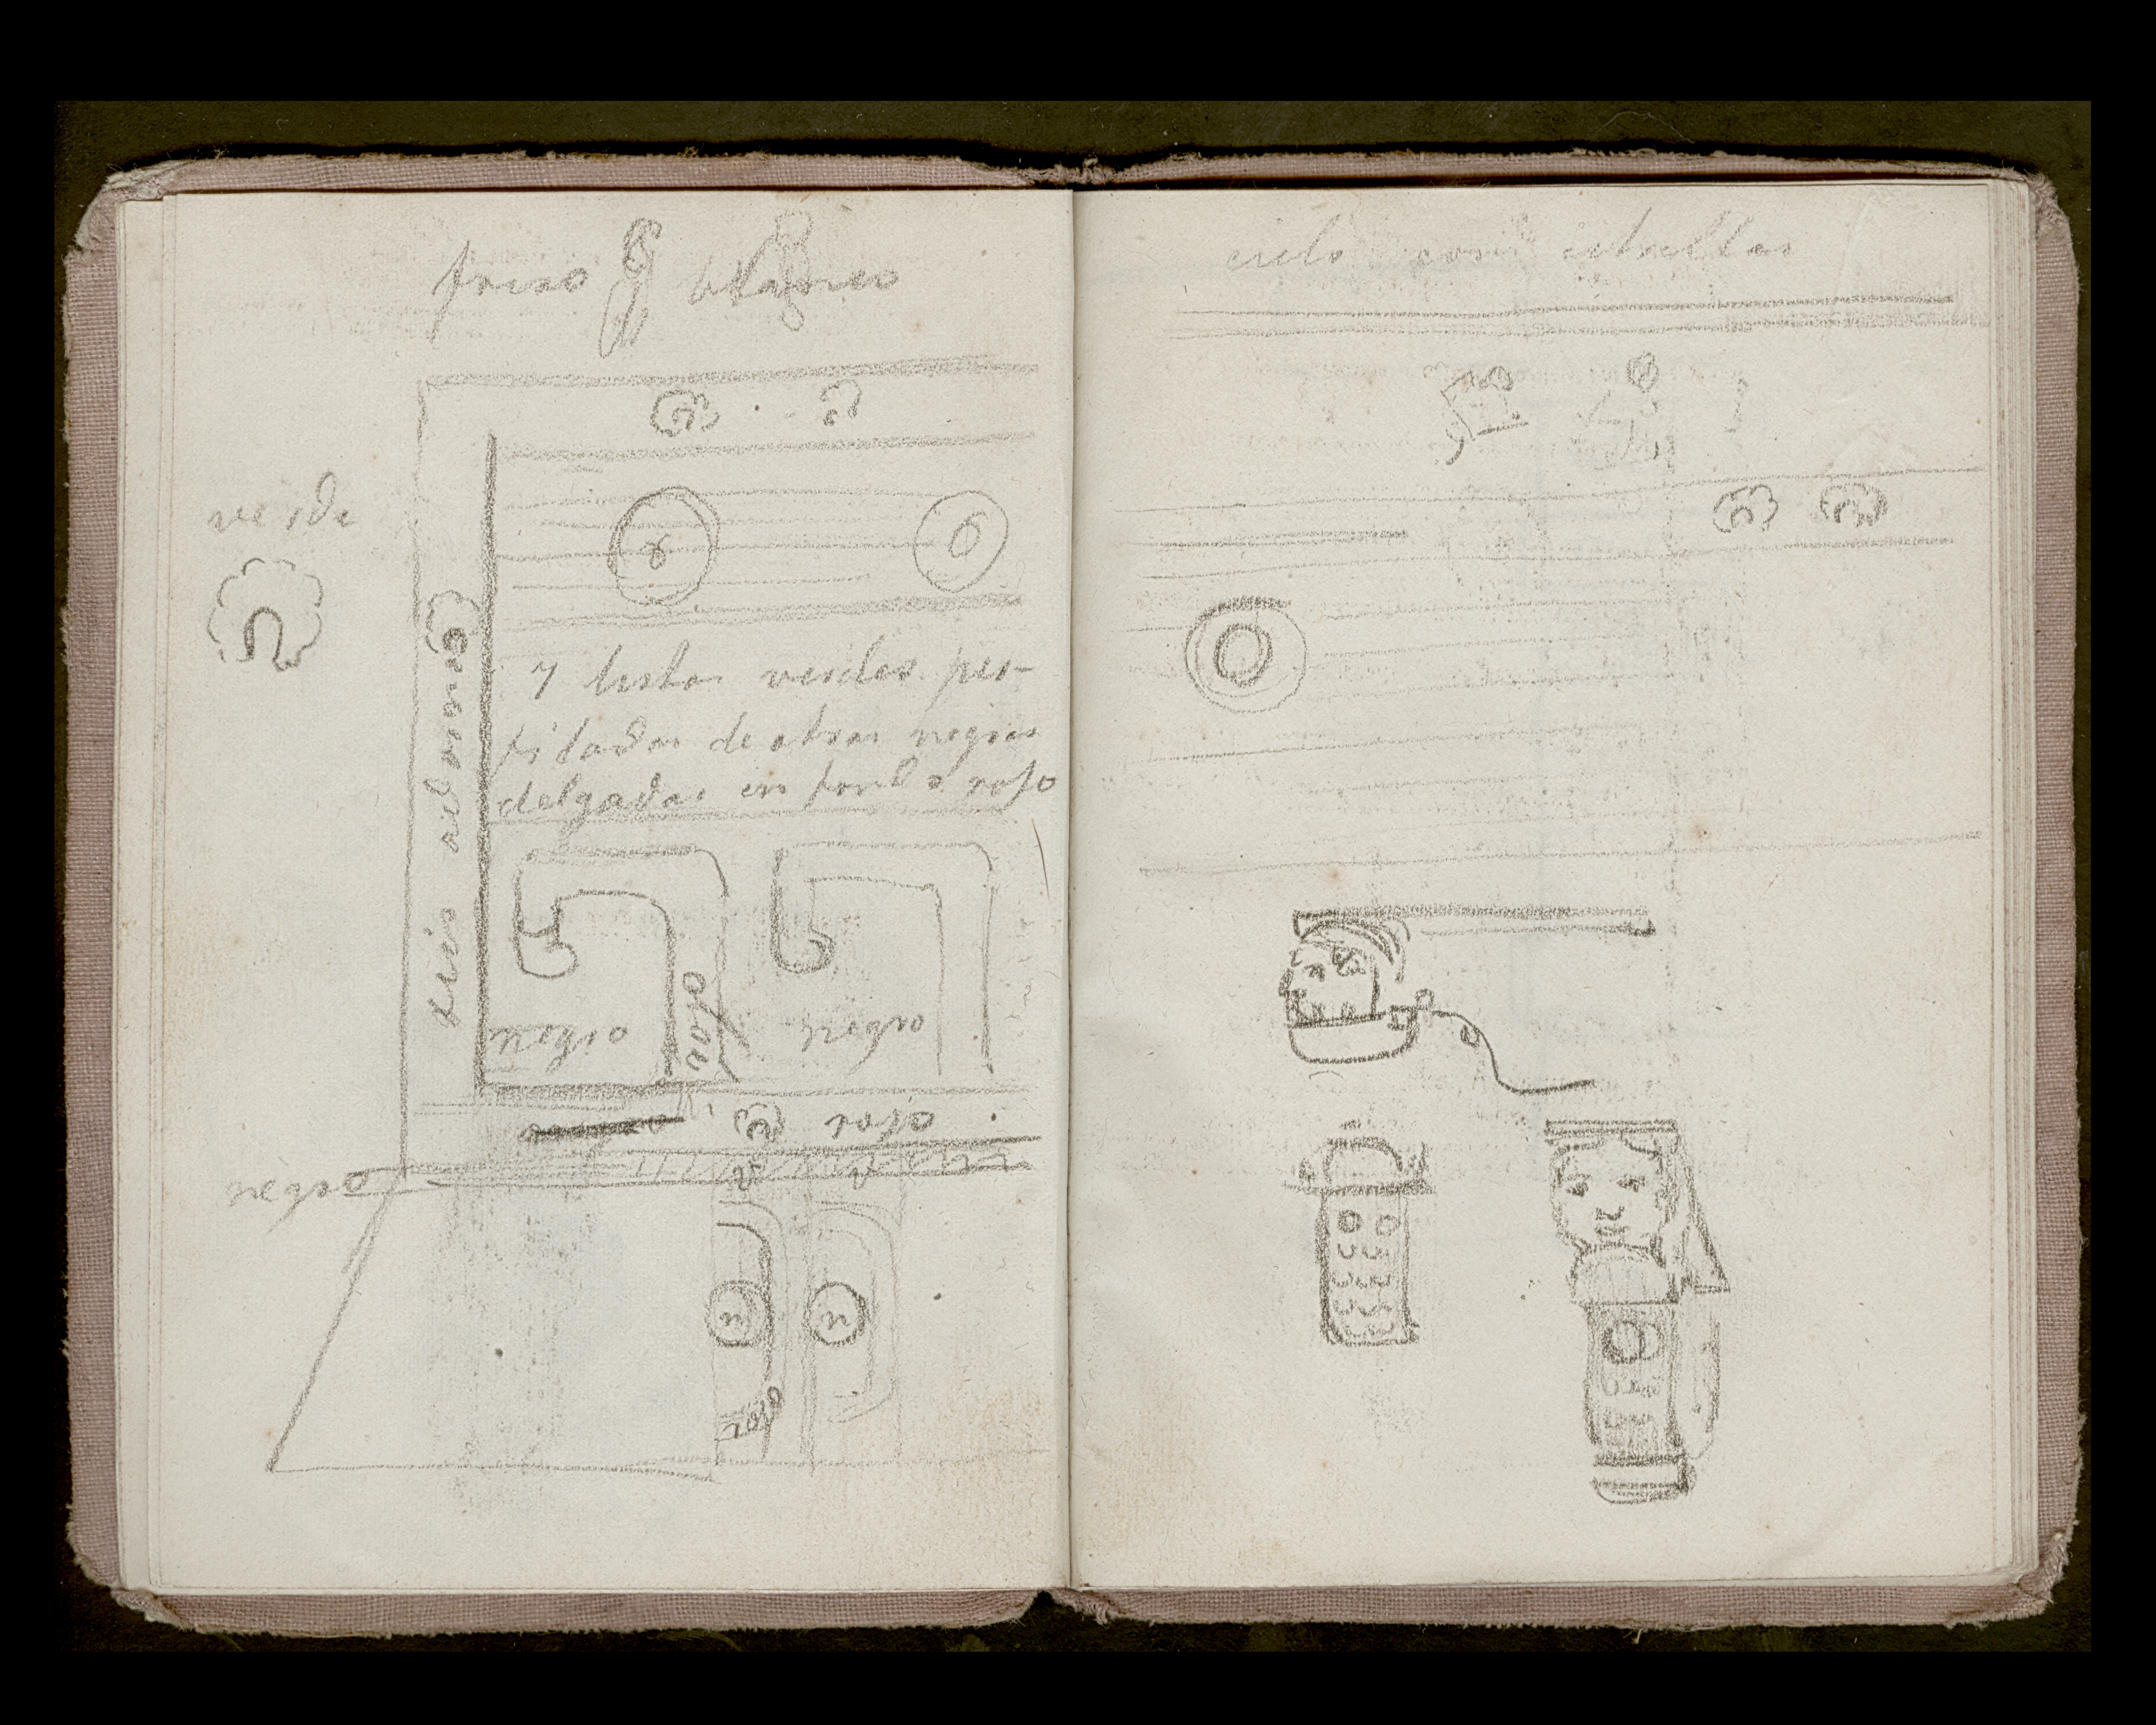 friso blanco
verde
7 listas verdes per-
filadas de otras negras
delgadas en fondo rojo
negro
rojo
negro
rojo
negro
n
n
rojo
cielo con estrellas